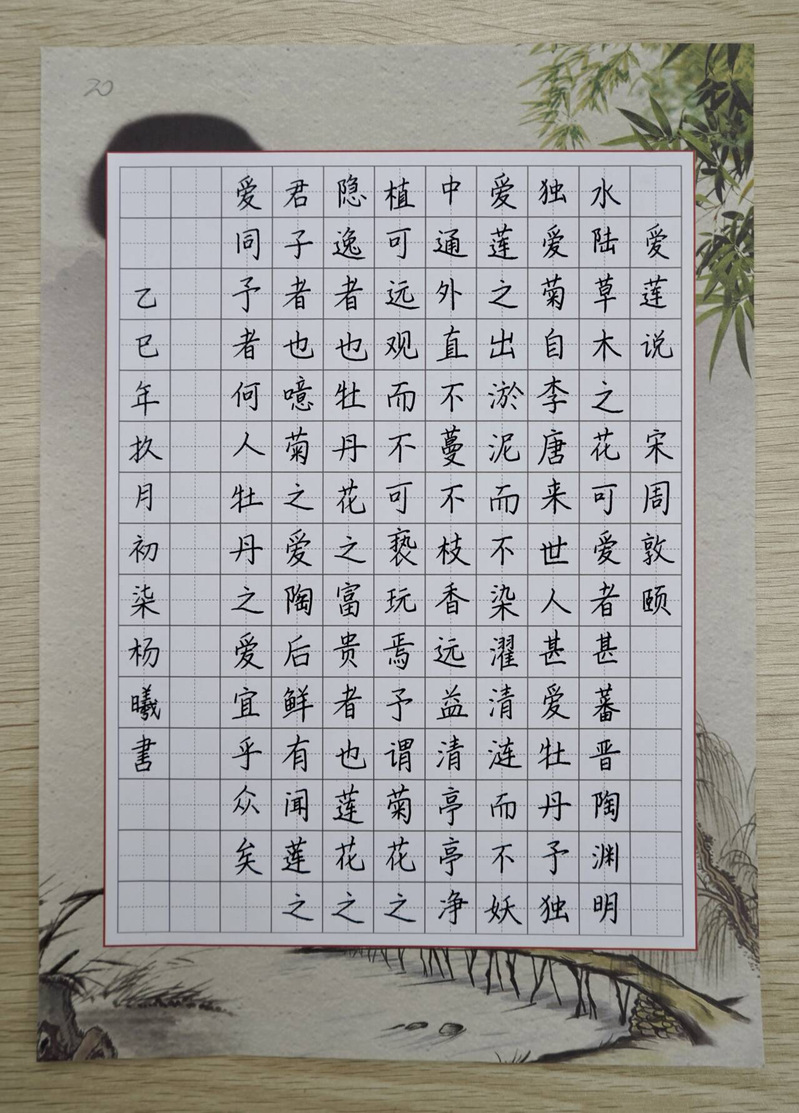 20
爱莲说 宋周敦颐
水陆草木之花可爱者甚蕃晋陶渊明
独爱菊自李唐来世人甚爱牡丹予独
爱莲之出淤泥而不染濯清涟而不妖
中通外直不蔓不枝香远益清亭亭净
植可远观而不可亵玩焉予谓菊花之
隐逸者也牡丹花之富贵者也莲花之
君子者也噫菊之爱陶后鲜有闻莲之
爱同予者何人牡丹之爱宜乎众矣
乙巳年玖月初柒杨曦书